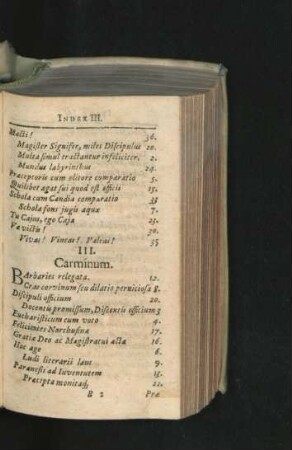 INDEX III.
Macti! 36.
Magister Signifer, miles Discipulus 20.
Multa simul tractantur infeliciter. 2.
Mundus labyrinthus 24.
Præceptoris cum olitore comparatio 5.
Quilibet agat sui quod est officii 15.
Schola cum Candia comparatio 33
Schola fons jugis aquæ 7.
Tu Cajus, ego Caja 23.
Væ victis! 30.
Vivas! Vincas! Valeas! 35
III.
Carminum.
BArbaries relegata. 12.
Cras corvinum seu dilatio perniciosa 8.
Discipuli officium 20.
Docentis promissum, Discentis officium 3
Eucharisticum cum voto 4.
Felicientes Northusina 17.
Gratiæ Deo ac Magistratui actæ 16.
Hoc age 6.
Ludi literarii laus 9.
Parænesis ad Iuventutem 13.
Præcepta monitaq; 22.
R 2 Pro